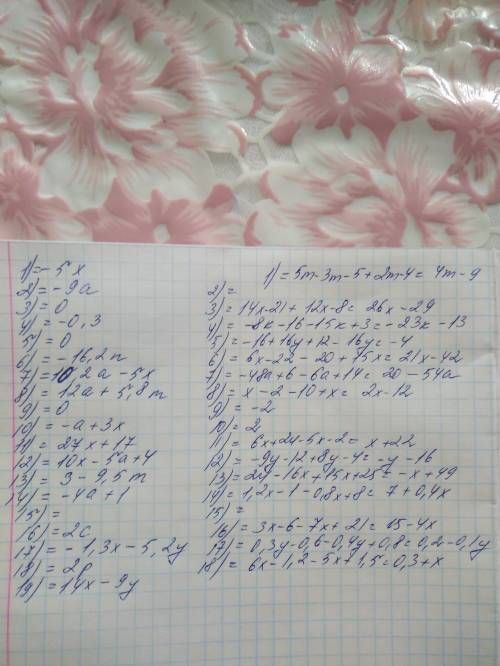 1) = -5x
2) = -9a
3) = 0
4) = -0,3
5) = 0
6) = -16,2n
7) = 10,2a - 5x
8) = 12a + 5,8m
9) = 0
10) = -a + 3x
11) = 27x + 17
12) = 10x - 5a + 4
13) = 3 - 9,5m
14) = -4a + 1
15) =
16) = 2c
17) = -1,3x - 5,2y
18) = 2p
19) = 14x - 9y
1) = 5m - 3m - 5 + 2m - 4 = 4m - 9
2) =
3) = 14x - 21 + 12x - 8 = 26x - 29
4) = -8k - 16 - 15k + 3 = -23k - 13
5) = -16 + 16y + 12 - 16y = -4
6) = 6x - 22 - 20 + 15x = 21x - 42
7) = -48a + 6 - 6a + 14 = 20 - 54a
8) = x - 2 - 10 + x = 2x - 12
9) = -2
10) = 2
11) = 6x + 24 - 5x - 2 = x + 22
12) = -9y - 12 + 8y - 4 = -y - 16
13) = 24 - 16x + 15x + 25 = -x + 49
14) = 1,2x - 1 - 0,8x + 8 = 7 + 0,4x
15) =
16) = 3x - 6 - 7x + 21 = 15 - 4x
17) = 0,3y - 0,6 - 0,4y + 0,8 = 0,2 - 0,1y
18) = 6x - 1,2 - 5x + 1,5 = 0,3 + x